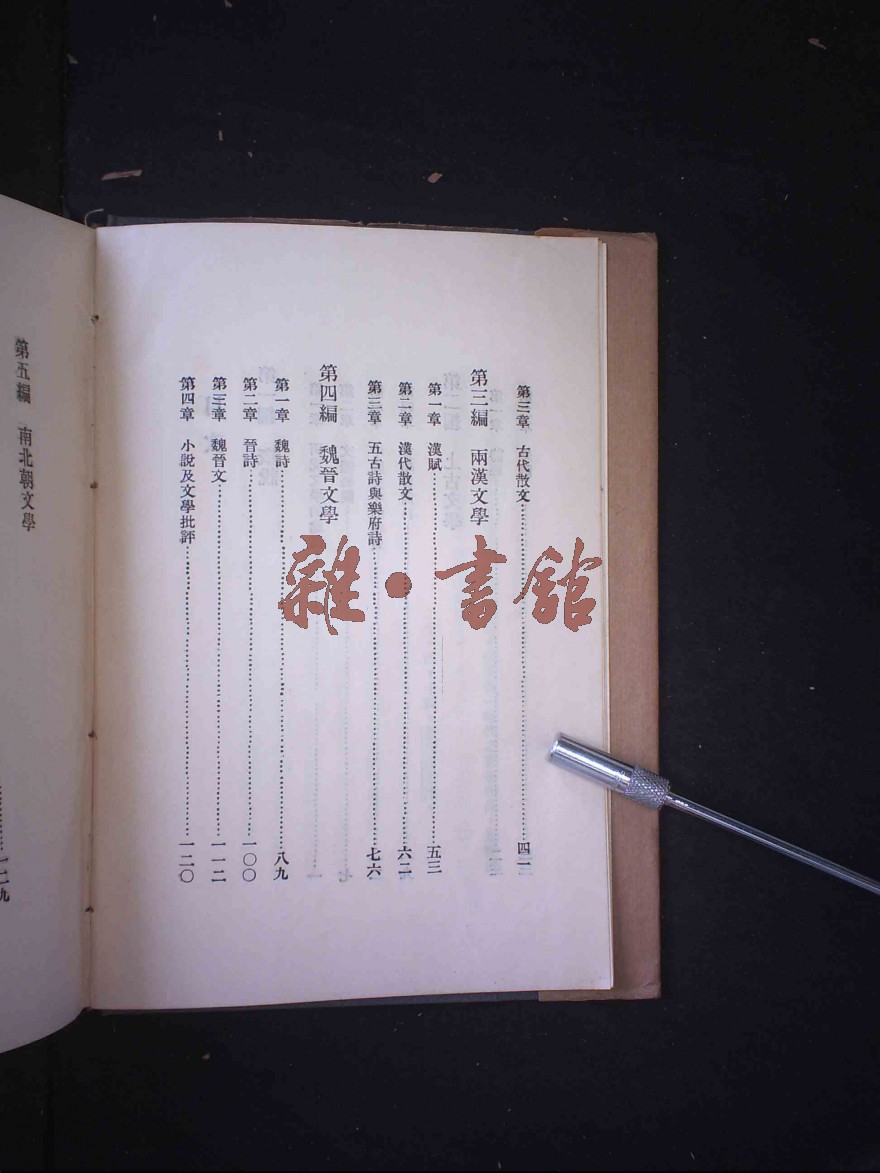 第三章 古代散文
第三編 兩漢文學
第一章 漢賦……五三
第二章 漢代散文……六二
第三章 五古詩與樂府詩……七六
第四編 魏晉文學
第一章 魏詩……八九
第二章 晉詩……一〇〇
第三章 魏晉文……一一二
第四章 小說及文學批評……一二〇
第五編 南北朝文學……一二九
雜·書館